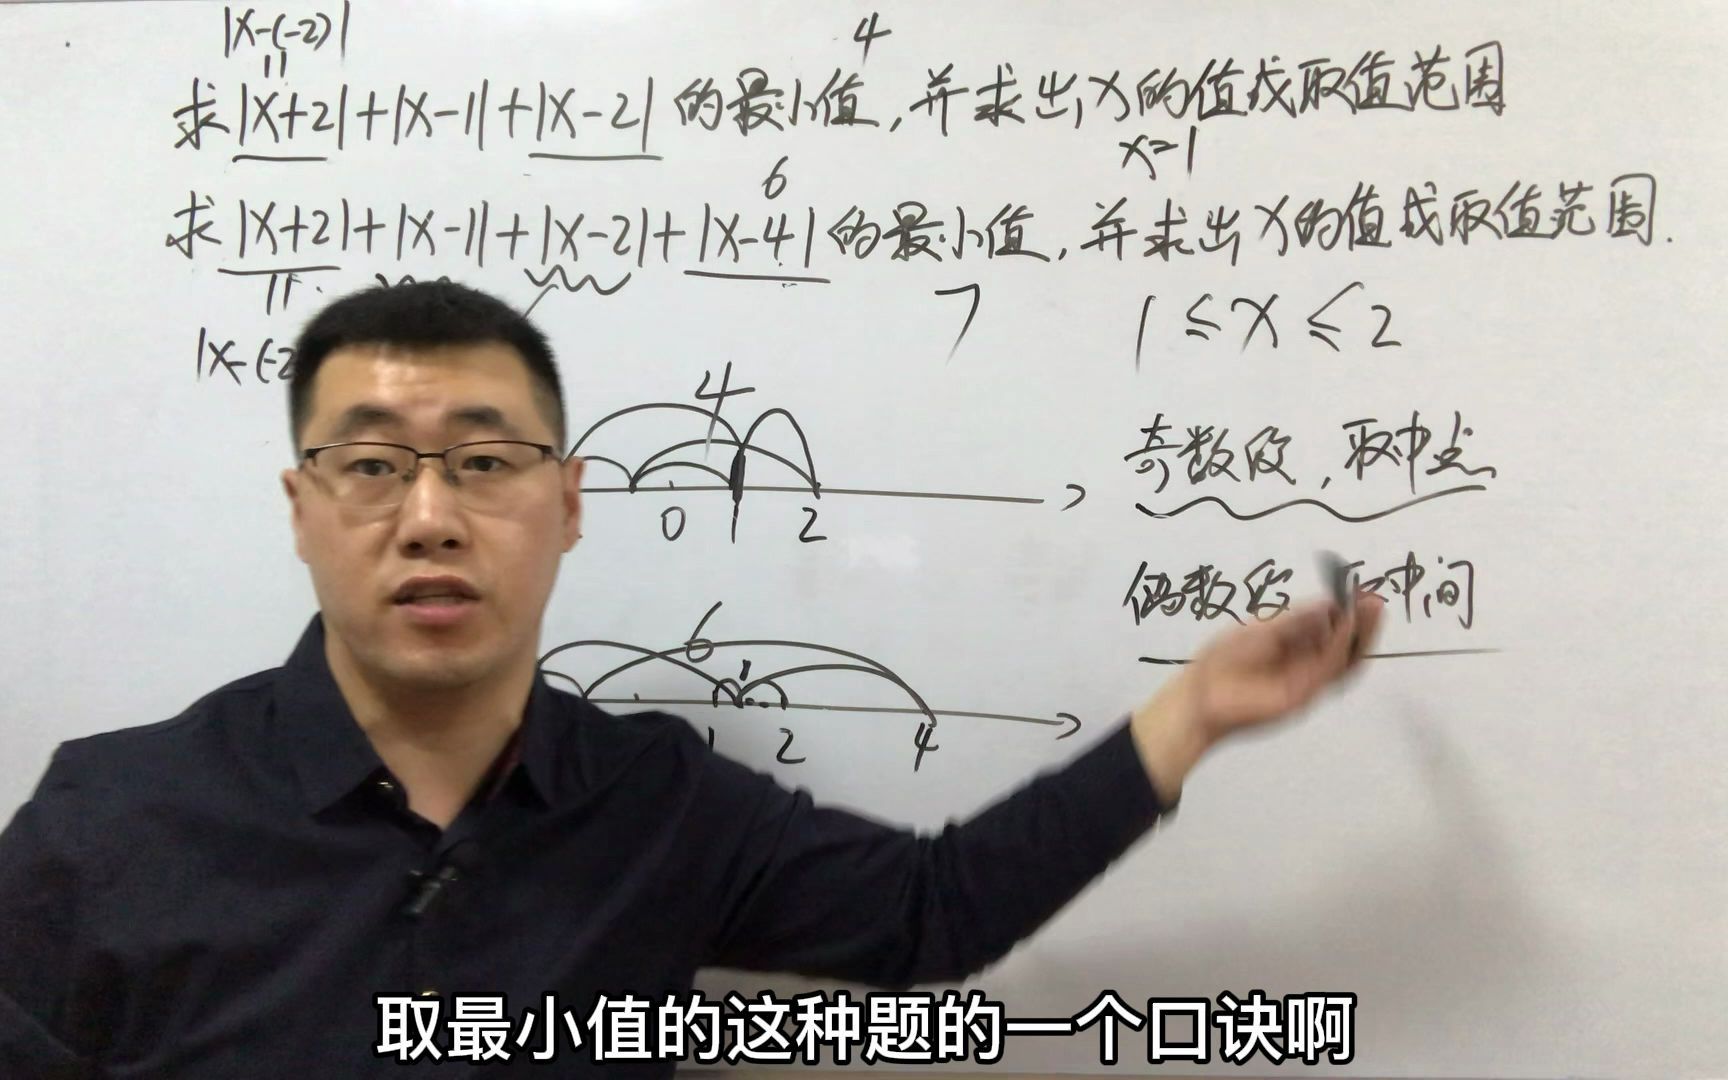 |X-(-2)|
=
4
求|X+2|+|X-1|+|X-2|的最小值,并求出X的值或取值范围
x=1
6
求|X+2|+|X-1|+|X-2|+|X-4|的最小值,并求出X的值或取值范围.
=
|X-(-2
7
1≤X≤2
4
0 1 2
奇数段,取中点
偶数段 取中间
6
1
1 2 4
取最小值的这种题的一个口诀啊